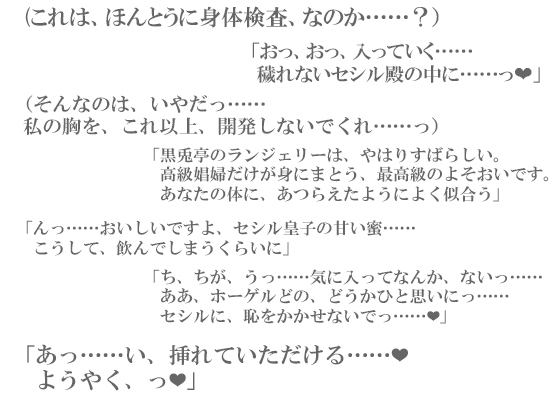 (これは、ほんとうに身体検査、なのか……？)
「おっ、おっ、入っていく……
穢れないセシル殿の中に……っ❤」
(そんなのは、いやだっ……
私の胸を、これ以上、開発しないでくれ……っ)
「黒兎亭のランジェリーは、やはりすばらしい。
高級娼婦だけが身にまとう、最高級のよそおいです。
あなたの体に、あつらえたようによく似合う」
「んっ……おいしいですよ、セシル皇子の甘い蜜……
こうして、飲んでしまうくらいに」
「ち、ちが、うっ……気に入ってなんか、ないっ……
ああ、ホーゲルどの、どうかひと思いにっ……
セシルに、恥をかかせないでっ……❤」
「あっ……い、挿れていただける……❤
ようやく、っ❤」